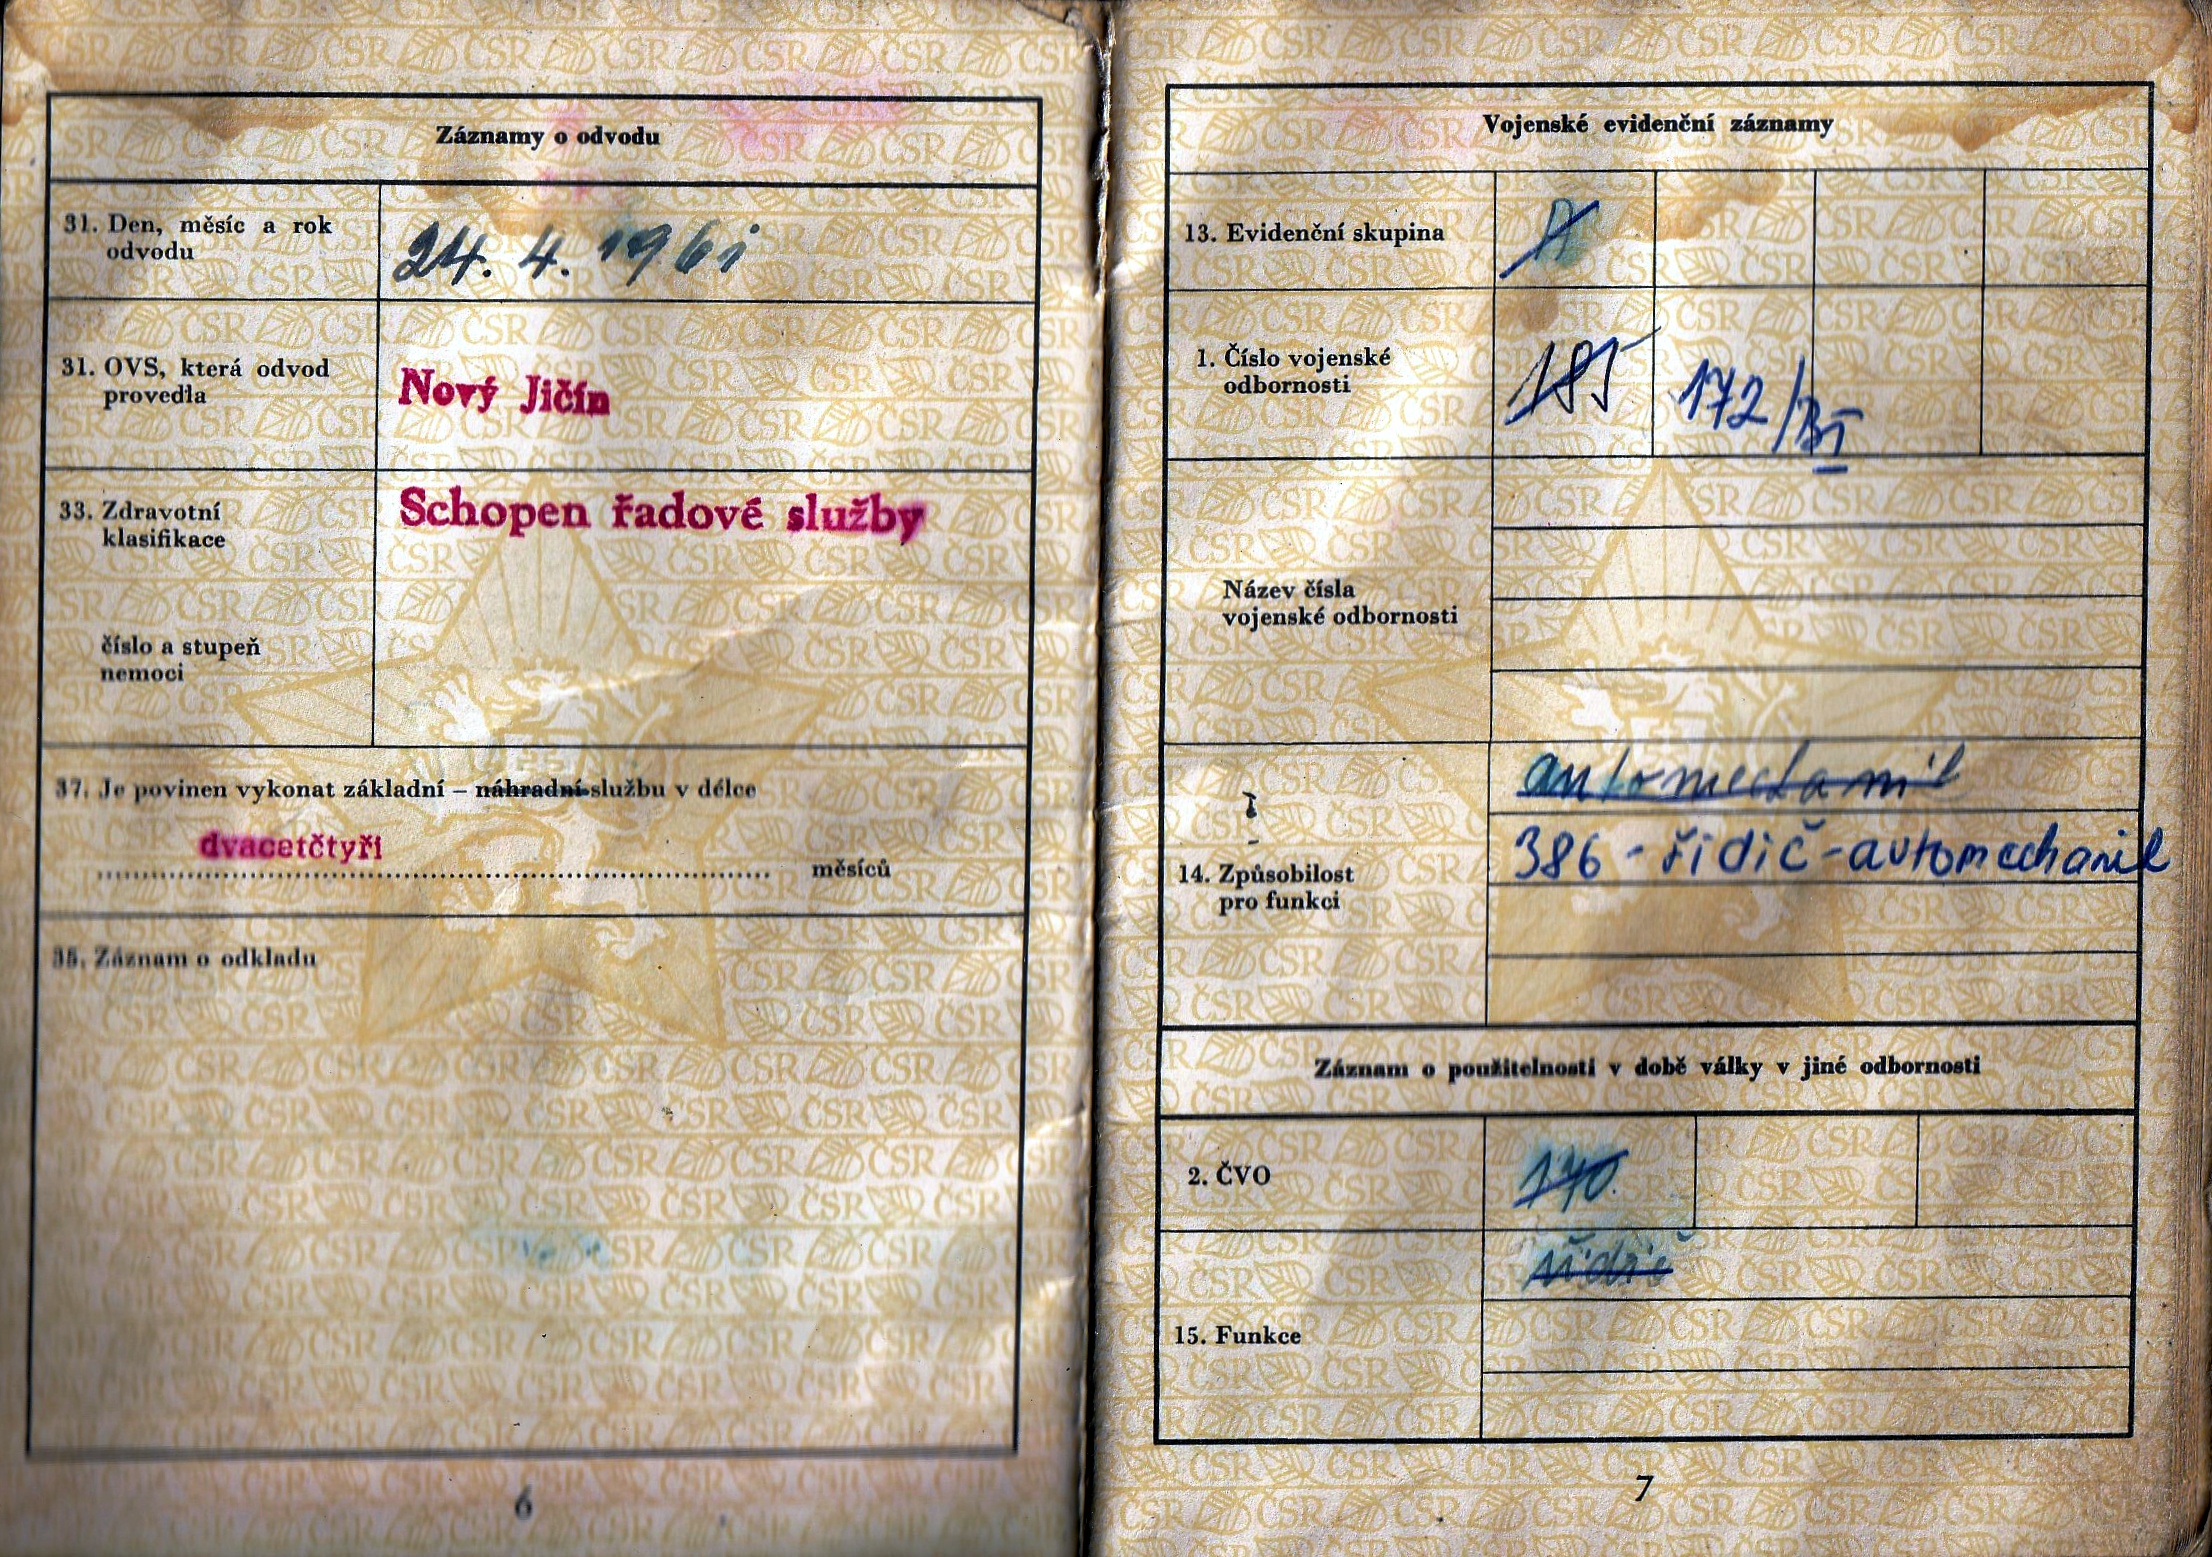 Záznamy o odvodu
31. Den, měsíc a rok
odvodu
24. 4. 1961
31. OVS, která odvod
provedla
Nový Jičín
33. Zdravotní
klasifikace
Schopen řadové služby
číslo a stupeň
nemoci
37. Je povinen vykonat základní – náhradní službu v délce
dvacetčtyři
měsíců
35. Záznam o odkladu
6
Vojenské evidenční záznamy
13. Evidenční skupina
A
1. Číslo vojenské
odbornosti
185 172/BI
Název čísla
vojenské odbornosti
automechanik
386 - řidič - automechanik
14. Způsobilost
pro funkci
Záznam o použitelnosti v době války v jiné odbornosti
2. ČVO
170
řidič
15. Funkce
7